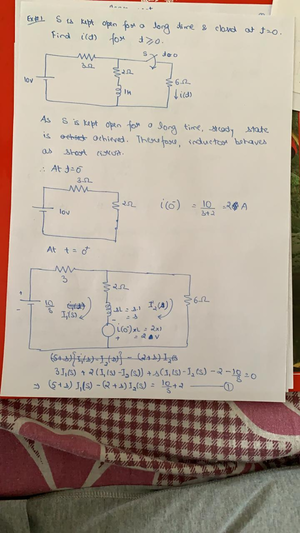 Exp1. S is kept open for a long time S closed at t=0.
Find i(t) for t≥0.
S t=0
3Ω
2Ω
10V
6Ω
1H
↓i(t)
As S is kept open for a long time, steady state
is achieved. Therefore, inductor behaves
as short circuit.
∴ At t=0⁻
3Ω
2Ω
10V
i(0⁻) = 10/3+2 = 2 A
At t = 0⁺
3
2Ω
+
10/s
-
I₁(s)
sL = s.1
I₂(s)
6Ω
-
i(0⁺)xL = 2x1
+ = 2V
(5+s)[I₁(s)-I₂(s)] - (2+s)I₂(s)
3I₁(s) + 2(I₁(s)-I₂(s)) + s(I₁(s)-I₂(s)) -2 -10/s = 0
⇒ (5+s) I₁(s) - (2+s) I₂(s) = 10/s +2 —— ①